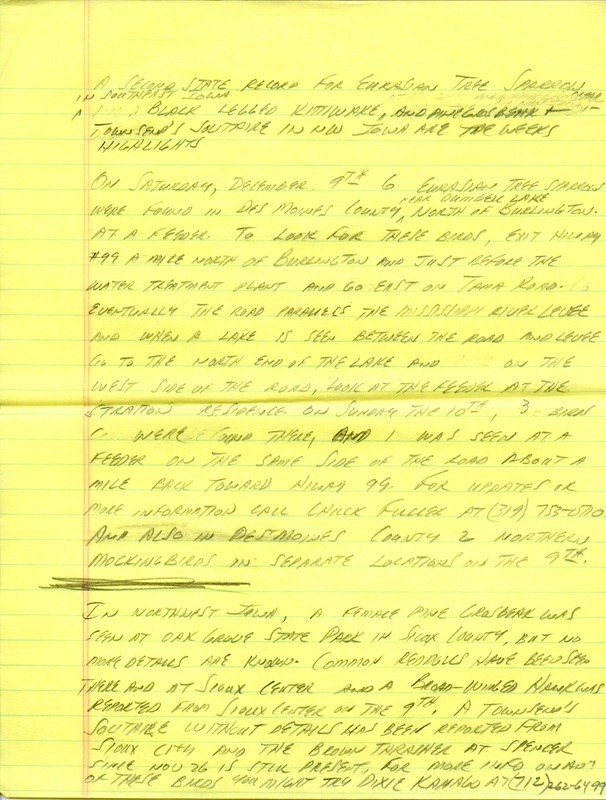 A SECOND STATE RECORD FOR EURASIAN TREE SPARROW
IN SOUTHEAST IOWA
BLACK LEGGED KITTIWAKE, AND PINE GROSBEAK +
TOWNSEND'S SOLITAIRE IN NW IOWA ARE THE WEEKS
HIGHLIGHTS
ON SATURDAY, DECEMBER 9TH 6 EURASIAN TREE SPARROWS
WERE FOUND IN DES MOINES COUNTY, NEAR DUMBELL LAKE NORTH OF BURLINGTON.
AT A FEEDER. TO LOOK FOR THESE BIRDS, EXIT HIWAY
#99 A MILE NORTH OF BURLINGTON AND JUST BEFORE THE
WATER TREATMENT PLANT AND GO EAST ON TAMA ROAD.
EVENTUALLY THE ROAD PARALLELS THE MISSISSIPPI RIVER LEVEE
AND WHEN A LAKE IS SEEN BETWEEN THE ROAD AND LEVEE
GO TO THE NORTH END OF THE LAKE AND ON THE
WEST SIDE OF THE ROAD, LOOK AT THE FEEDER AT THE
RESIDENCE ON SUNDAY THE 10TH, 3 BIRDS
WERE FOUND THERE, AND 1 WAS SEEN AT A
FEEDER ON THE SAME SIDE OF THE ROAD ABOUT A
MILE BACK TOWARD HIWAY 99. FOR UPDATES OR
MORE INFORMATION CALL CHUCK FULLER AT (319) 753-
AND ALSO IN DES MOINES COUNTY 2 NORTHERN
MOCKINGBIRDS IN SEPARATE LOCATIONS ON THE 9TH.
IN NORTHWEST IOWA, A FEMALE PINE GROSBEAK WAS
SEEN AT OAK GROVE STATE PARK IN SIOUX COUNTY, BUT NO
MORE DETAILS ARE KNOWN. COMMON REDPOLLS HAVE BEEN SEEN
THERE AND AT SIOUX CENTER AND A BROAD-WINGED HAWK WAS
REPORTED FROM SIOUX CENTER ON THE 9TH. A TOWNSEND'S
SOLITAIRE WITHOUT DETAILS HAS BEEN REPORTED FROM
SIOUX CITY AND THE BROWN THRASHER AT SPENCER
SINCE NOV 26 IS STILL PRESENT, FOR MORE INFO ON ANY
OF THESE BIRDS YOU MIGHT TRY DIXIE AT (712) 262-6499